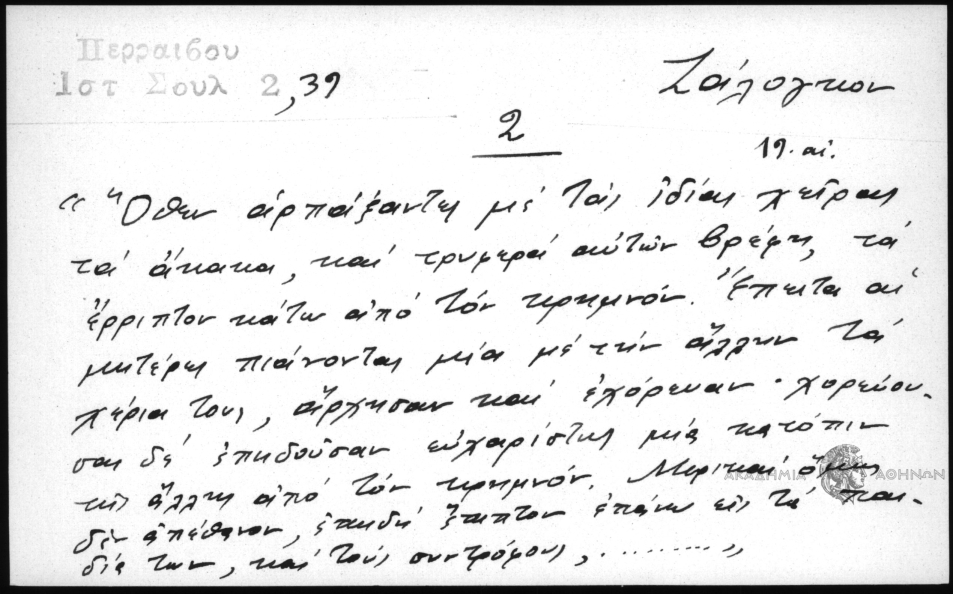 Περραιβου
Ιστ Σουλ 2, 39
Ζάλογκον
2
19. αἰ.
" Ὅθεν ἁρπάξαντες μέ τάς ἰδίας χεῖρας
τά ἄκακα, καί τρυφερά αὐτῶν βρέφη, τά
ἔρριπτον κάτω ἀπό τόν κρημνόν. Ἔπειτα αἱ
μητέρες πιάνοντας μία μέ τήν ἄλλην τά
χέρια τους, ἄρχησαν καί ἐχόρευαν · χορεύου-
σαι δέ ἐπηδοῦσαν εὐχαρίστως μία κατόπιν
τῆς ἄλλης ἀπό τόν κρημνόν. Μερικαί ὅμως
δέν ἀπέθανον, ἐπειδή ἔπιπτον ἐπάνω εἰς τά παι-
διά των, καί τούς συντρόφους, ......... "
ΑΚΑΔΗΜΙΑ ΑΘΗΝΩΝ